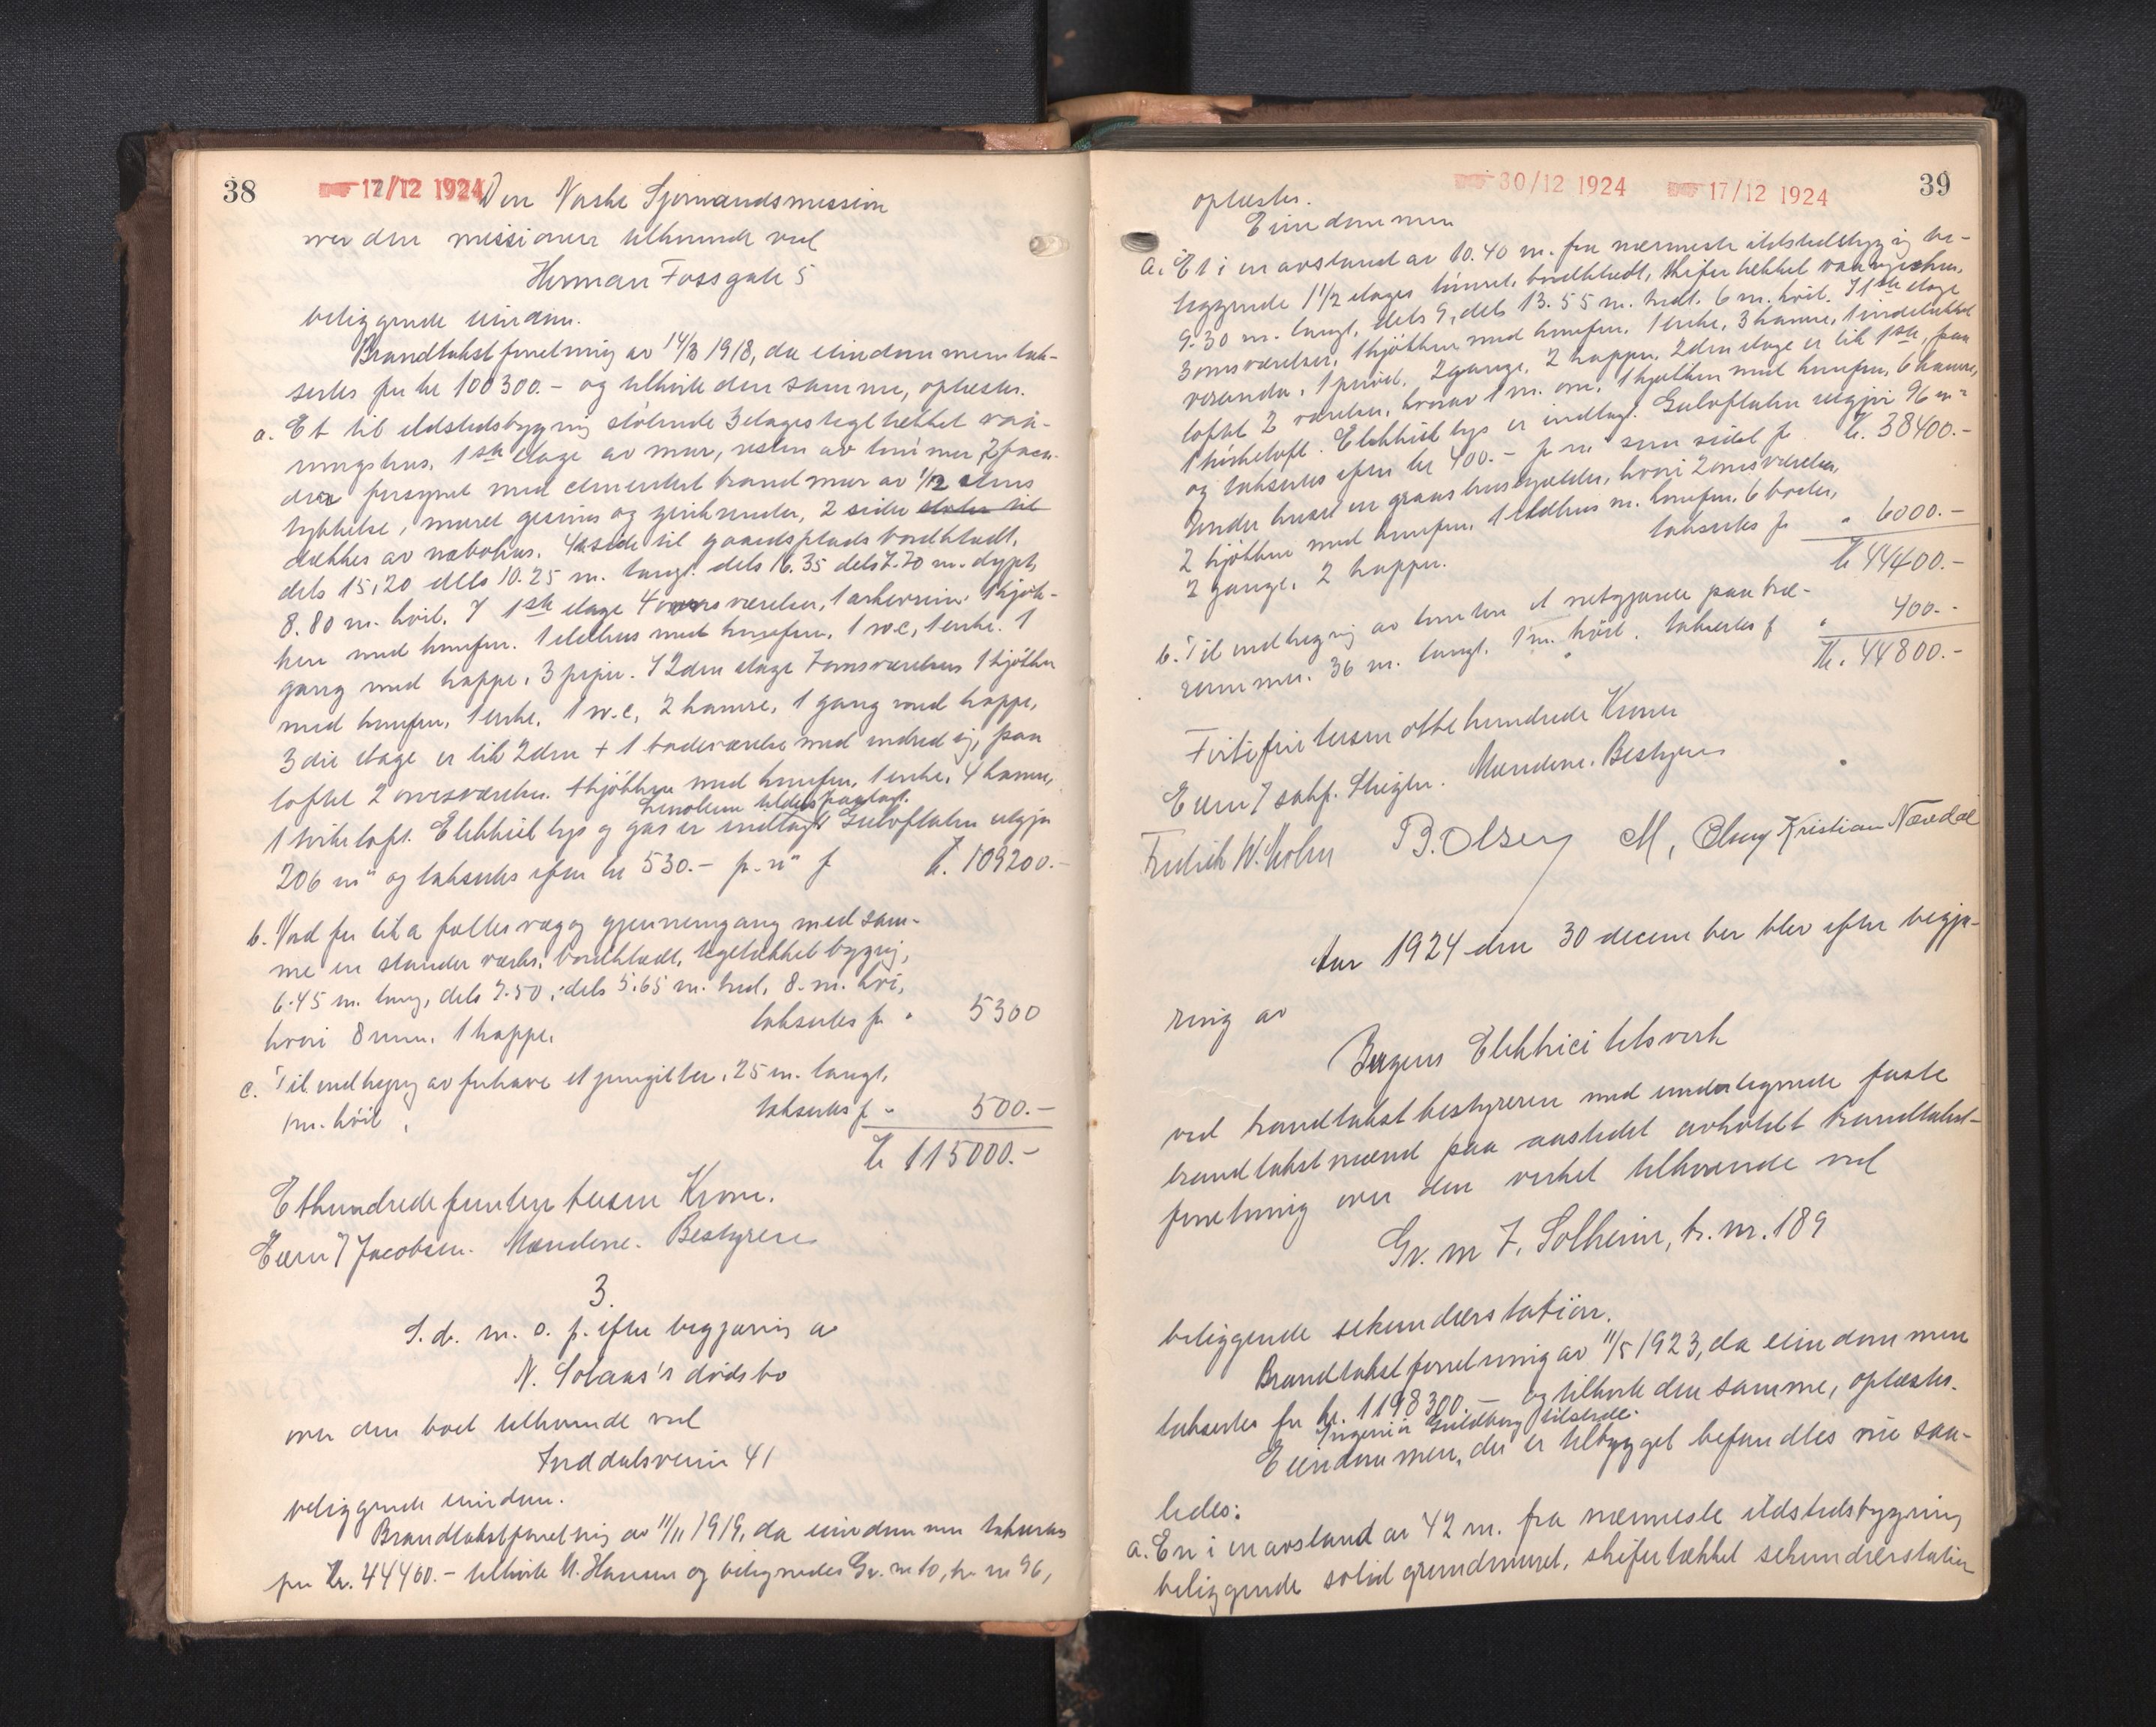 38
17/12 1924
Den Norske Sjømandsmission
over den missionen tilhørende ved
Herman Fossgate 5
beliggende eiendom.
Brandtakstforretning av 14/3 1918, da eiendommen tak-
sertes for kr 100300.- og tilhørte den samme, oplæstes.
a. Et til ildstedsbygning stötende 3 etages tegltækket vaa-
ningshus, 1ste etage av mur, resten av tömmer, 2 faca-
der forsynet med cementert brandmur av 1/2 stens
tykkelse, muret gesims og zinkrender, 2 sider støter til
dækkes av nabohus. 4de side til gaardsplads bordklædt,
dels 15,20 dels 10.25 m. langt. dels 16.35 dels 7.70 m. dypt,
8.80 m. høit. I 1ste etage 4 værelser, 1 arkivrum. 1 kjök-
ken med komfur. 1 ildhus med komfur, 1 w.c, 1 enke. 1
gang med trappe, 3 piper. I 2den etage 7 omsværelser 1 kjökken
med komfur, 1 enke, 1 w.c, 2 kamre, 1 gang med trappe,
3die etage er lik 2den + 1 badeværelse med indredning, paa
loftet 2 omsværelser. 1 kjökken med komfur, 1 enke, 4 kamre,
Linoleum tildels paalagt.
1 törkeloft. Elektrisk lys og gas er indlagt Gulvflaten utgjør
206 m² og takseres efter kr 530.- pr. m² f kr. 109200.-
b. Nord for lit a fælles væg og gjennemgang med sam-
me en stander verks, bordklædt, tegltækket bygning,
6.45 m. lang, dels 7.50, dels 5.65 m. bred, 8. m. høi,
hvori 8 rum. 1 trappe. takseres for " 5300
c. Til indhegning av forhave et jerngitter, 25 m. langt,
1 m. höit, takseres f " 500.-
Kr 115000.-
Ethundrede femten tusen Kroner.
Eieren v/ Jacobsen. Mændene. Bestyreren
3.
S. d. m. o. f. efter begjæring av
N. Solaas's dødsbo
over den boet tilhørende ved
Inddalsveien 41
beliggende eiendom.
Brandtakstforretning av 11/11 1919, da eiendommen takseres
for Kr. 44400.- tilhørte M. Hansen og betegnedes Gr. m 10, br. nr 96,
30/12 1924
17/12 1924
39
oplæstes.
Eiendommen
a. Et i en avstand av 10.40 m. fra nærmeste ildstedsbygning be-
liggende 1 1/2 etages tömret, bordklædt, skifertækket vaaningshus,
9.30 m. langt, dels 9, dels 13.55 m. bredt. 6 m. höit. I 1ste etage
3 omsværelser, 1 kjökken med komfur. 1 enke, 3 kamre, 1 indelukket
veranda, 1 privet, 2 gange, 2 trapper. 2den etage er lik 1ste, paa
loftet 2 værelser, hvorav 1 m. ovn, 1 kjøkken med komfur, 6 kamre,
1 törkeloft. Elektrisk lys er indlagt. Gulvflaten utgjør 96 m²
og takseres efter kr 400.- pr m² som sidst f kr. 38400.-
Under huset en graastenskjælder, hvori 2 omsværelser,
2 kjøkken med komfur, 1 ildhus m. komfur, 6 boder,
2 gange, 2 trapper. takseres f " 6000.-
Kr 44400.-
b. Til indhegning av tomten et netgjærde paa træ-
rammer. 36 m. langt. 1 m. höit. takseres f " 400.-
Kr. 44800.-
Firtifire tusen otte hundrede Kroner
Eieren v/ sakf. Stiegler. Mændene. Bestyreren
Fredrik W. Holm B. Olsen M, Elvig Kristian Nævdal
Aar 1924 den 30 december blev efter begjæ-
ring av
Bergens Elektricitetsverk
ved brandtakstbestyreren med undertegnede faste
brandtakstmænd paa aastedet avholdt brandtakst-
forretning over den verket tilhørende ved
Gr. m 7, Solheim, br. nr. 189
beliggende sekundærstation.
Brandtakstforretning av 11/5 1923, da eiendommen
taksertes for kr. 1198300.- og tilhørte den samme, oplæstes.
Ingeniör Guldberg tilstede.
Eiendommen, der er tilbygget befandtes nu saa-
ledes:
a. En i en avstand av 42 m. fra nærmeste ildstedsbygning
beliggende solid grundmuret, skifertækket sekundærstation